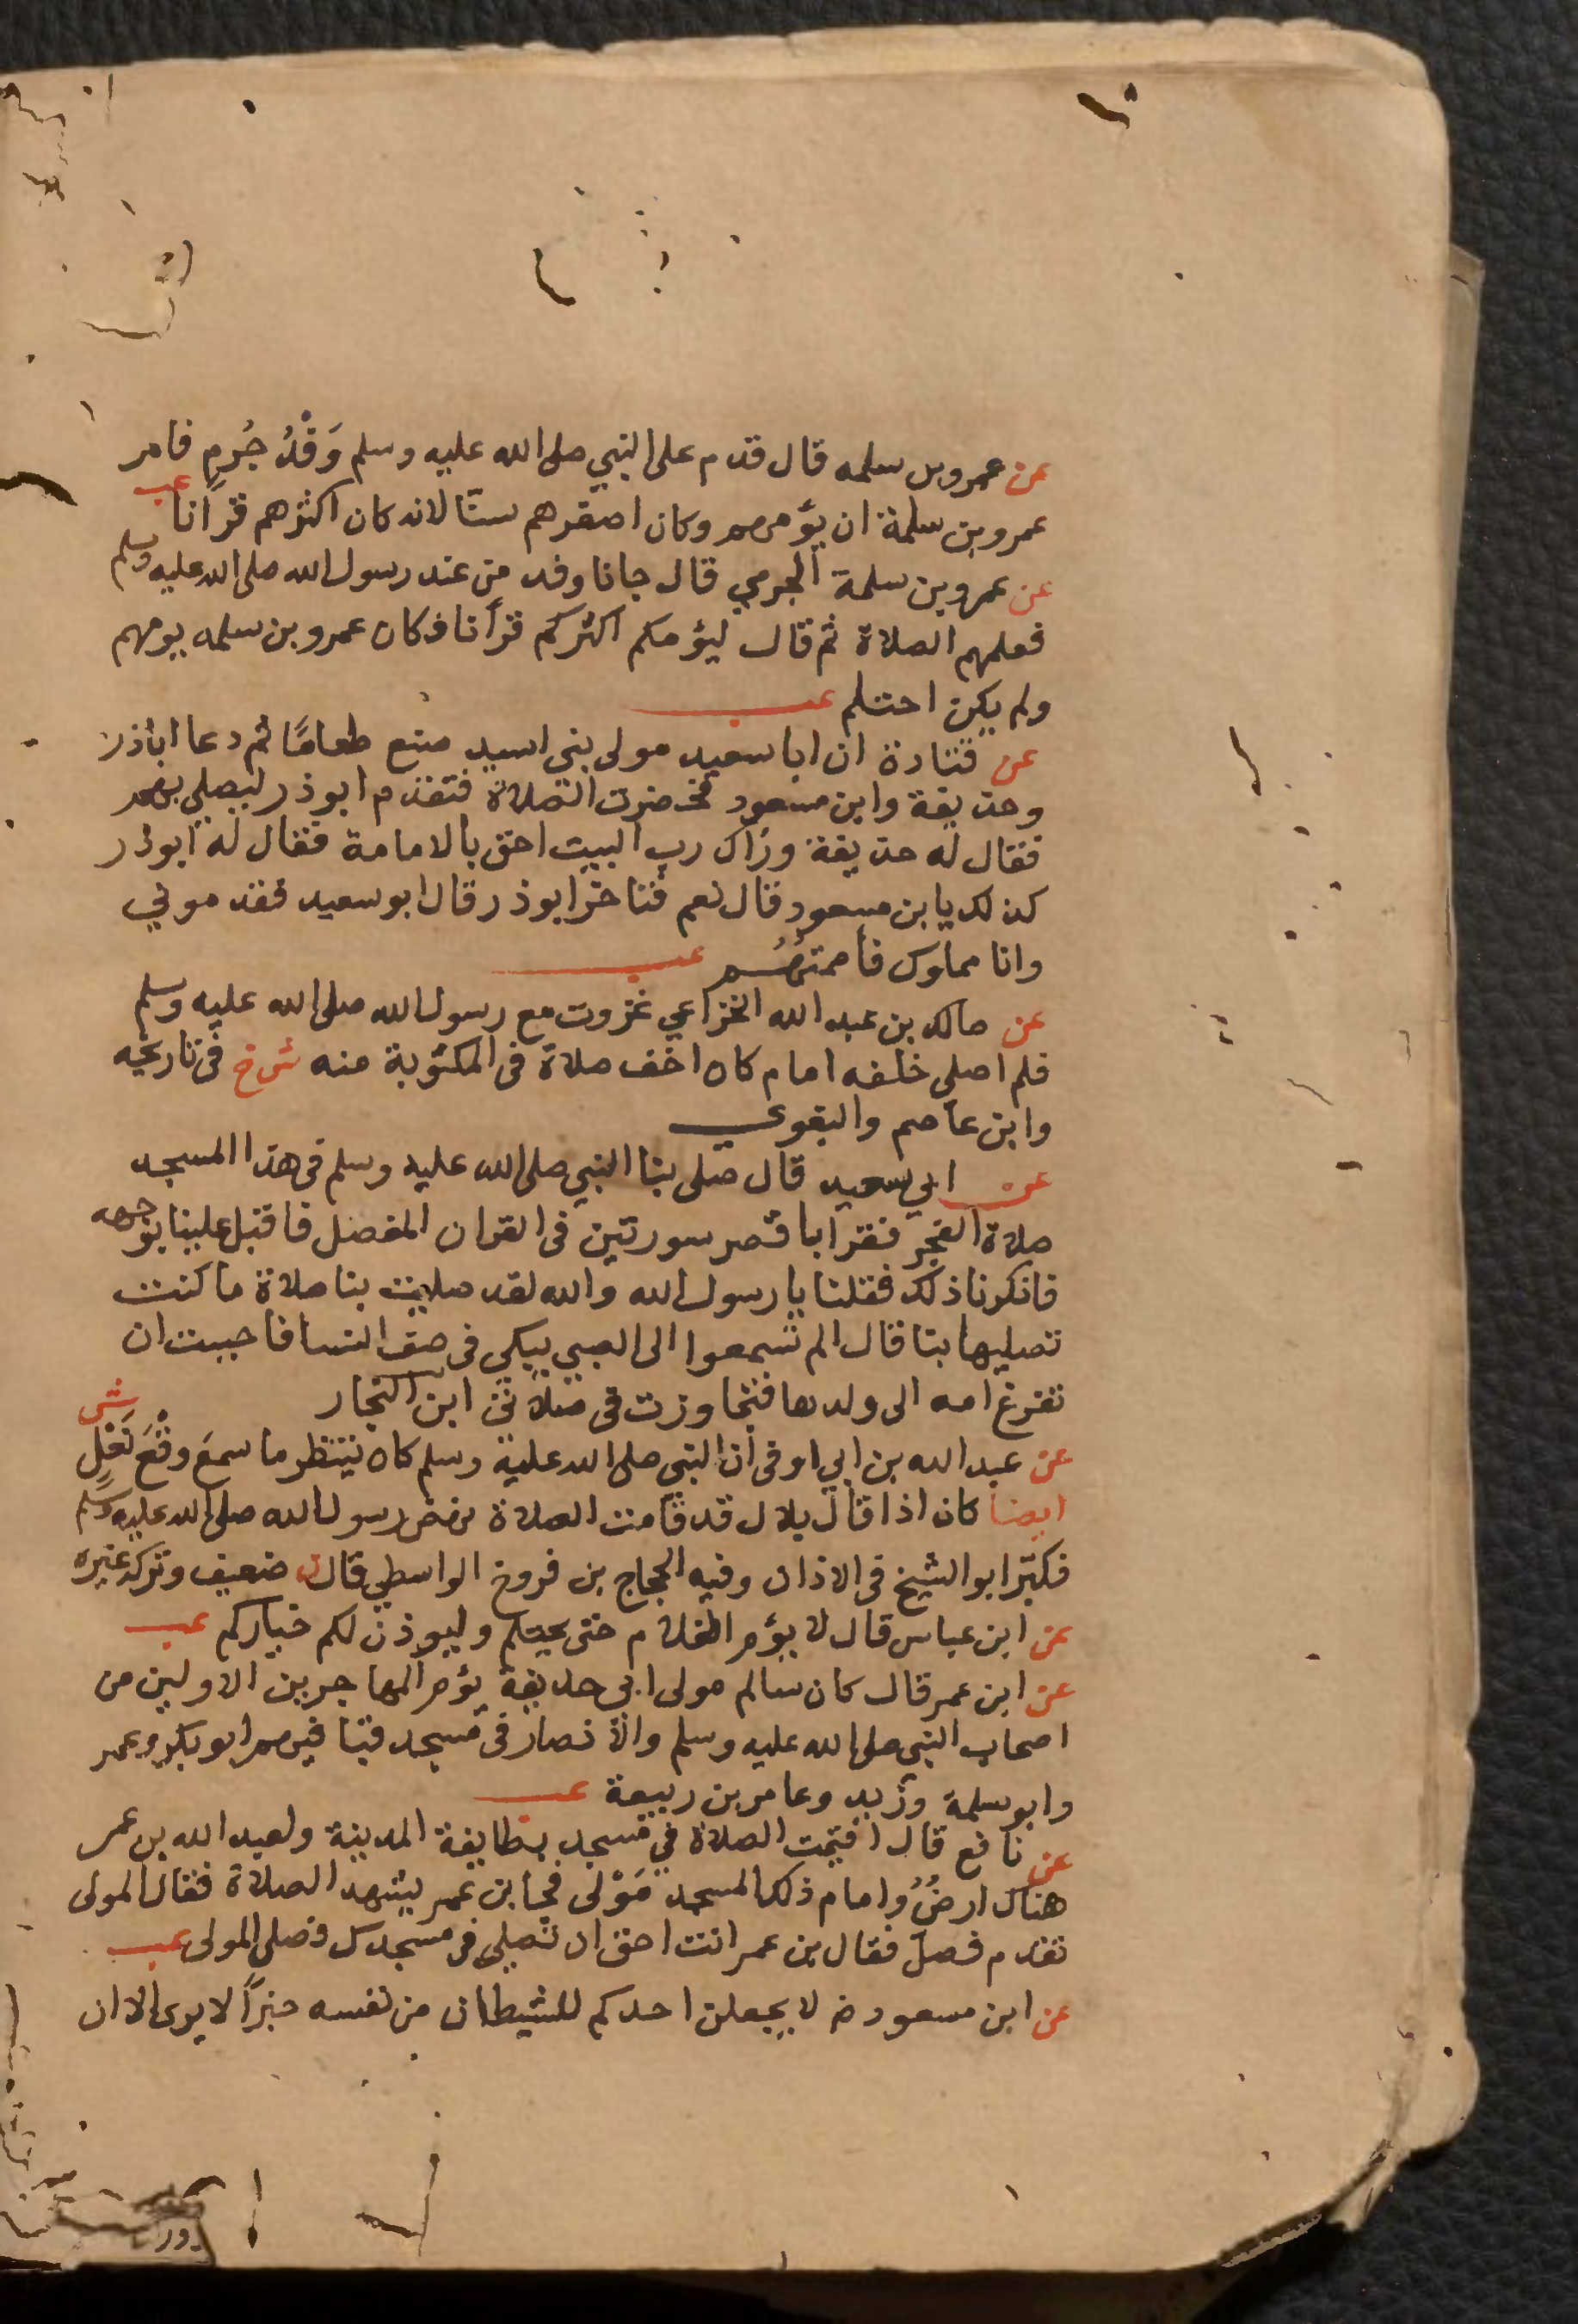 عن عمروبن سلمه قال قدم على النبي صلى الله عليه وسلم وَفْدُ جُرمٍ فامر
عمروبن سلمة ان يؤمهم وكان اصغرهم سنّا لانه كان اكثرهم قرآنا عب
عن عمروبن سلمة الجرمي قال جانا وفد من عند رسول الله صلى الله عليه وسلم
فعلمهم الصلاة ثم قال ليؤمكم اكثركم قرأنا فكان عمرو بن سلمه يومهم
ولم يكن احتلم عب
عن قتادة ان ابا سعيد مولى بني اسيد صنع طعامًا ثم دعا اباذر
وحذيفة وابن مسعود فحضرت الصلاة فتقدم ابوذر ليصلي بهم
فقال له حذيفة وراك رب البيت احق بالامامة فقال له ابوذر
كذلك يابن مسعود قال نعم فتاخر ابوذر قال ابوسعيد فقدموني
وانا مملوك فأممتُهُم عب
عن مالك بن عبد الله الخزاعي غزوت مع رسول الله صلى الله عليه وسلم
فلم اصلي خلفه امام كان اخف صلاة فى المكتوبة منه ش خ فى تاريخه
وابن عاصم والبغوي
عن ابي سعيد قال صلى بنا النبي صلى الله عليه وسلم فى هذا المسجد
صلاة الفجر فقرا باقصر سورتين فى القران المفصل فاقبل علينا بوجهه
فانكرنا ذلك فقلنا يا رسول الله والله لقد صليت بنا صلاة ما كنت
تصليها بنا قال الم تسمعوا الى الصبي يبكي فى صف النسا فاحببت ان
تفرغ امه الى ولدها فتجاوزت فى صلاتى ابن النجار
عن عبد الله بن ابي اوفى أن النبي صلى الله علية وسلم كان ينتظر ما سمعَ وقْعَ نَعْلٍ ش
ايضا كان اذا قال بلال قد قامت الصلاة نهض رسول الله صلى الله عليه وسلم
فكبّر ابو الشيخ فى الاذان وفيه الحجاج بن فروخ الواسطي قال ن ضعيف وتركه غيره
عن ابن عباس قال لا يؤم الغلام حتى يحتلم وليوذن لكم خياركم عب
عن ابن عمر قال كان سالم مولى ابي حذيفة يؤم المهاجرين الاولين من
اصحاب النبي صلى الله عليه وسلم والانصار فى مسجد قبا فيهم ابو بكر وعمر
وابوسلمة وزيد وعامر بن ربيعة عب
عن نافع قال اقيمت الصلاة في مسجد بطايفة المدينة ولعبد الله بن عمر
هناك ارضٌ وامام ذلك المسجد مَوْلى فجا بن عمر يشهد الصلاة فقال المولى
تقدم فصلّ فقال بن عمر انت احق ان تصلي فى مسجدك فصلى المولى عب
عن ابن مسعود رض لا يجعلن احدكم للشيطان من نفسه جزأً لا يرى الا ان